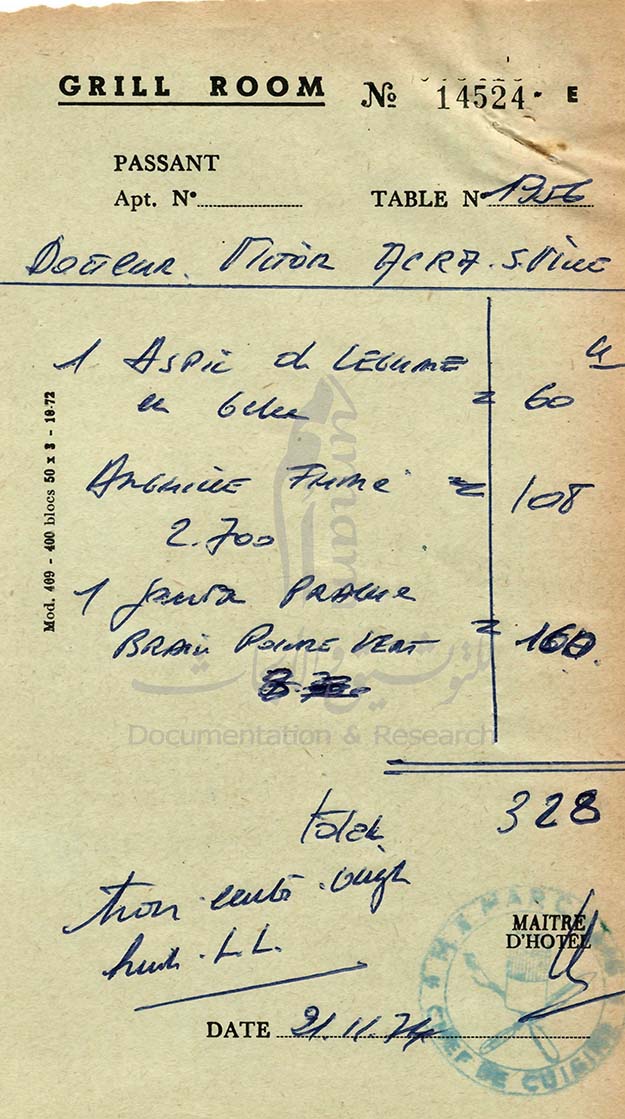 GRILL ROOM № 14524 • E
PASSANT
Apt. N°
TABLE N°
Docteur. ACRA
1 ASPIC de LEGUME
en = 60
ANGUILLE FUMÉ = 108
2.700
1 PRAGUE
POIVRE VERT = 160
Total 328
trois cents vingt
huit. L.L.
MAITRE
D'HOTEL
CHEF DE CUISINE
DATE 21.11.74
Mod. 409 - 400 blocs 50 x 3 - 10-72
Documentation & Research